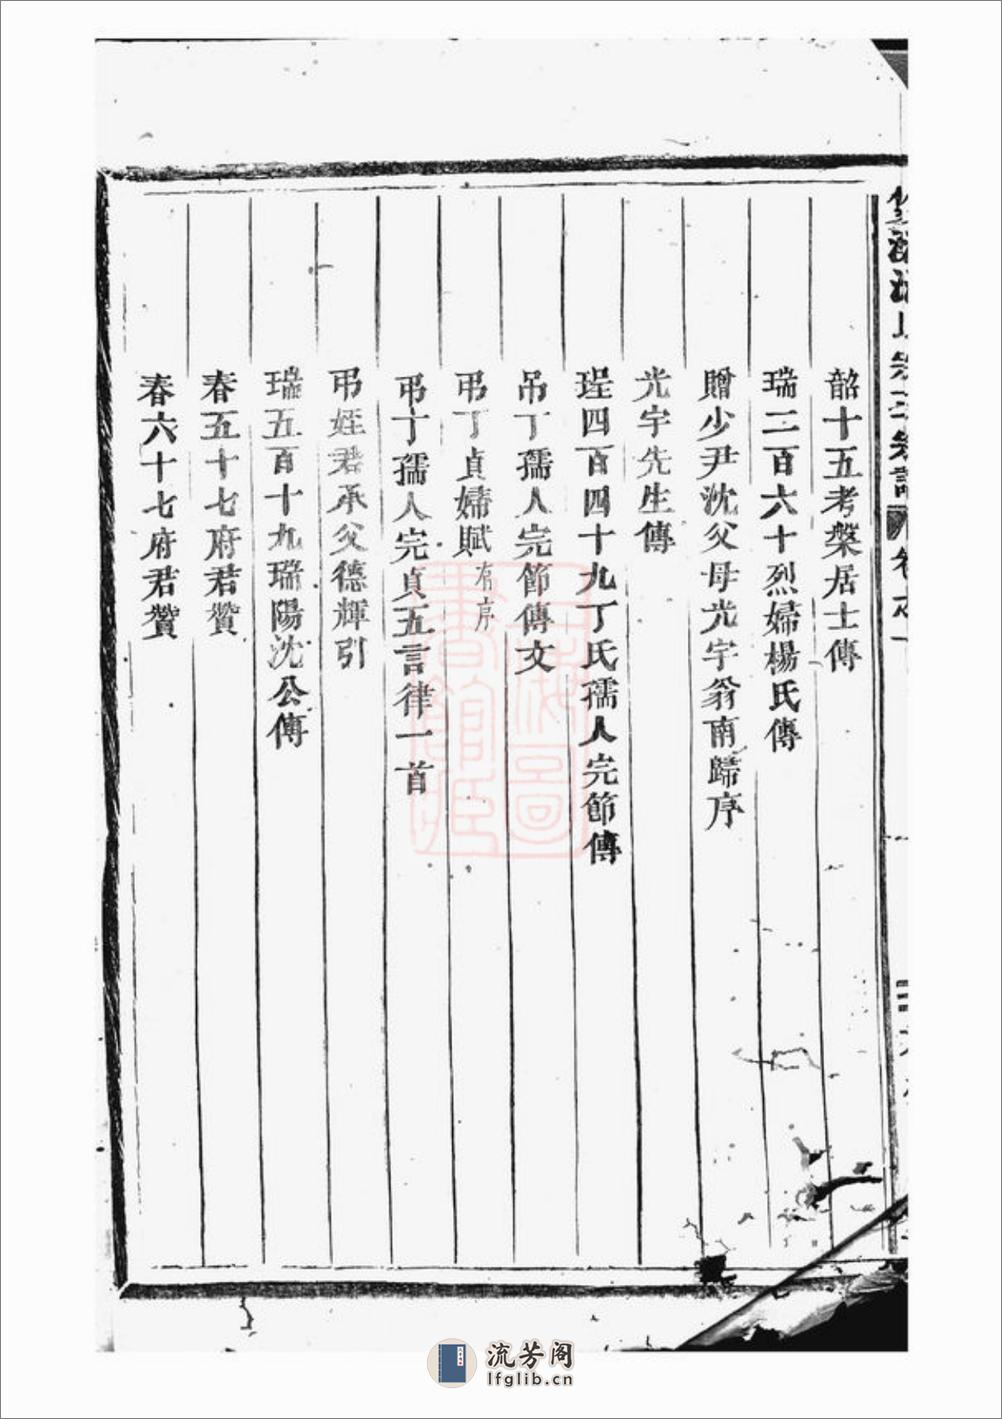 韶十五考槃居士傳
瑞二百六十烈婦楊氏傳
贈少尹沈父母光宇翁南歸序
光宇先生傳
珵四百四十九丁氏孺人完節傳
吊丁孺人完節傳文
弔丁貞婦賦有序
弔丁孺人完貞五言律一首
弔姪君承父德輝引
瑞五百十九瑞陽沈公傳
春五十七府君贊
春六十七府君贊
上海圖
書館藏
流芳阁
lfglib.cn